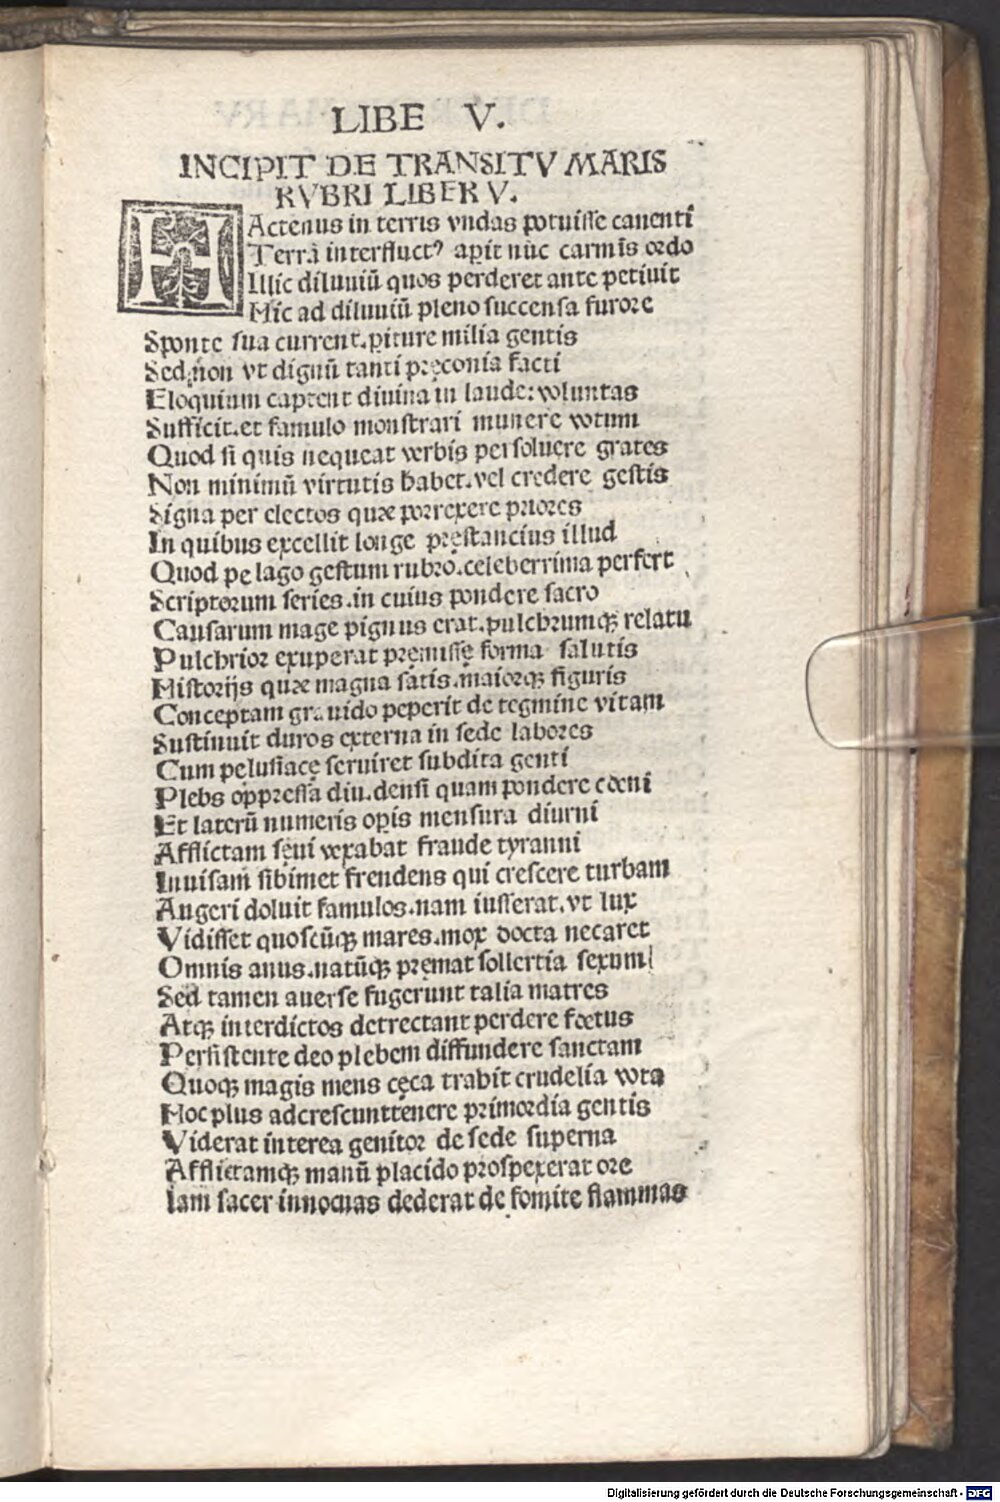 LIBE V.
INCIPIT DE TRANSITV MARIS
RVBRI LIBER V.
HActenus in terris vndas potuisse canenti
Terrā interfluctꝰ apit nūc carmīs ordo
Illic diluuiū quos perderet ante petiuit
Hic ad diluuiū pleno succensa furore
Sponte sua current.piture milia gentis
Sed non vt dignū tanti pręconia facti
Eloquium captent diuina in laude: voluntas
Sufficit.et famulo monstrari munere votum
Quod si quis nequeat verbis persoluere grates
Non minimū virtutis habet.vel credere gestis
Signa per electos quæ porrexere priores
In quibus excellit longe pręstancius illud
Quod pelago gestum rubro.celeberrima perfert
Scriptorum series.in cuius pondere sacro
Causarum mage pignus erat.pulchrumqꝫ relatu
Pulchrior exuperat pręmissę forma salutis
Historijs quæ magna satis.maiorqꝫ figuris
Conceptam grauido peperit de tegmine vitam
Sustinuit duros externa in sede labores
Cum pelusiacę seruiret subdita genti
Plebs oppressa diu.densi quam pondere cœni
Et laterū numeris opis mensura diurni
Afflictam sęui vexabat fraude tyranni
Inuisam sibimet frendens qui crescere turbam
Augeri doluit famulos.nam iusserat.vt lux
Vidisset quoscūqꝫ mares.mox docta necaret
Omnis anus.natūqꝫ pręmat sollertia sexum
Sed tamen auerse fugerunt talia matres
Atqꝫ interdictos detrectant perdere fœtus
Persistente deo plebem diffundere sanctam
Quoqꝫ magis mens cęca trahit crudelia vota
Hoc plus adcrescunt tenere primordia gentis
Viderat interea genitor de sede superna
Afflictamqꝫ manū placido prospexerat ore
Iam sacer innocuas dederat de fomite flammas
Digitalisierung gefördert durch die Deutsche Forschungsgemeinschaft - DFG